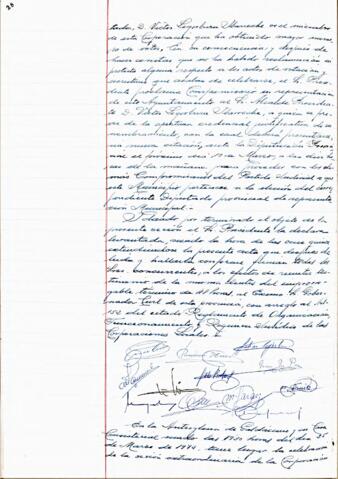 28
tado, D. Victor Legorburu es el miembro
de esta Corporación que ha obtenido mayor número
ro de votos. En su consecuencia y después
de hacer constar que no ha habido reclamación ni
protesta alguna respecto a los actos de votación y
escrutinio que acaban de celebrarse, el Sr. Presi-
dente proclama Compromisario en representación
de este Ayuntamiento al Sr. Alcalde Presidente
D. Victor Legorburu, a quien se pro-
vee de la oportuna credencial justificativa de su
nombramiento, con la cual deberá presentarse,
sin nueva citación, ante la Diputación Provin-
cial el próximo día de Marzo, a las diez ho-
ras de la mañana, para proceder con los de-
más Compromisarios del Partido Judicial a que
este Municipio pertenece a la elección del corres-
pondiente Diputado provincial de representa-
ción Municipal.
Y dando por terminado el objeto de la
presente sesión el Sr. Presidente la declara
levantada, siendo la hora de las once
extendiéndose la presente acta que después de
leída y hallada conforme firman todos los
Sres. concurrentes, a los efectos de remitir
de la misma dentro del improrro-
gable término de 24 horas, al Excmo. Sr. Gober-
nador Civil de esta provincia, con arreglo al Art.
del citado Reglamento de Organización,
Funcionamiento y Régimen Jurídico de las
Corporaciones Locales
En la Anteiglesia de Galdácano, en Casa
Consistorial siendo las 19'30 horas del día 25
de Marzo de, tuvo lugar la celebración
de la sesión extraordinaria de la Corporación